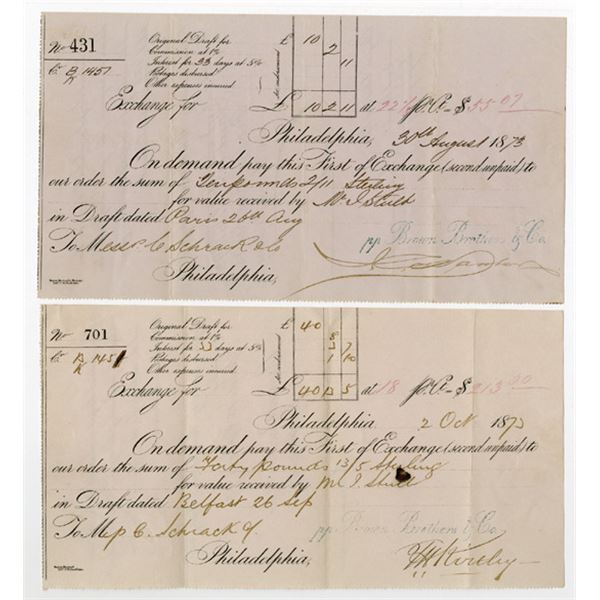 No 431
Original Draft for £ 10
Commission at 1% 2
Interest for 33 days at 5% 11
Postages disbursed
Other expenses incurred
to redraw
C. B/K 1451
Exchange for £ 10 2 11 at 22½ p.Ct - $55.07
Philadelphia, 30th August 1873
On demand pay this First of Exchange (second unpaid) to
our order the sum of Ten pounds 2/11 Sterling
for value received by Mr J. Stutt
in Draft dated Paris 26th Aug
To Messrs C. Schrack & Co
pp Brown Brothers & Co.
Philadelphia,
No 701
Original Draft for £ 40
Commission at 1% 8
Interest for 33 days at 5% 3 7
Postages disbursed 1 10
Other expenses incurred
C. B/K 1451
Exchange for £ 40 13 5 at 18 p.Ct - $213.00
Philadelphia 2 Oct 1873
On demand pay this First of Exchange (second unpaid) to
our order the sum of Forty pounds 13/5 sterling
for value received by Mr J. Stutt
in Draft dated Belfast 26 Sep
To M C. Schrack
pp Brown Brothers & Co.
Philadelphia,